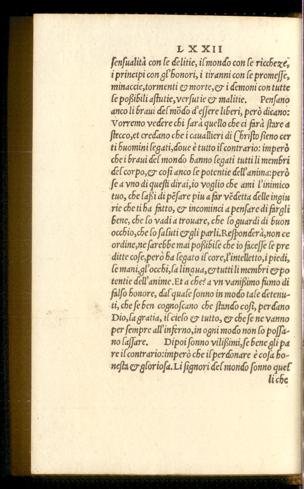 LXXII
sensualità con le delitie, il mondo con le ricchezé,
i principi con gl'honori, i tiranni con le promesse,
minaccie, tormenti & morte, & i demoni con tutte
le poßibili astutie, versutie & malitie. Pensano
anco li braui del mõdo d'essere liberi, però dicano:
Vorremo vedere chi sarà quello che ci farà stare a
stecco, et credano che i cauallieri di Christo sieno cer
ti huomini legati, doue è tutto il contrario: imperò
che i braui del mondo hanno legati tutti li membri
del corpo, & cosi anco le potentie dell'anima: però
se a vno di questi dirai, io voglio che ami l'inimico
tuo, che laßi di pẽsare piu a far vẽdetta delle ingiu
rie che ti ha fatto, & incominci a pensare di fargli
bene, che lo vadi a trouare, che lo guardi di buon
occhio, che lo saluti & gli parli. Responderà, non ce
ordine, ne sarebbe mai poßibile che io facesse le pre
ditte cose, però ha legato il core, l'intelletto, i piedi,
le mani, gl'occhi, la lingua, & tutti li membri & po
tentie dell'anime. Et a che? a vn vanißimo fumo di
falso honore, dal quale sonno in modo tale detenu-
ti, che se ben cognoscano che stando così, perdano
Dio, la gratia, il cielo & tutto, & che se ne vanno
per sempre all'inferno, in ogni modo non lo possa-
no lassare. Dipoi sonno vilißimi, se bene gli pa
re il contrario: imperò che il perdonare è cosa ho-
nesta & gloriosa. Li signori del mondo sonno quel
li che